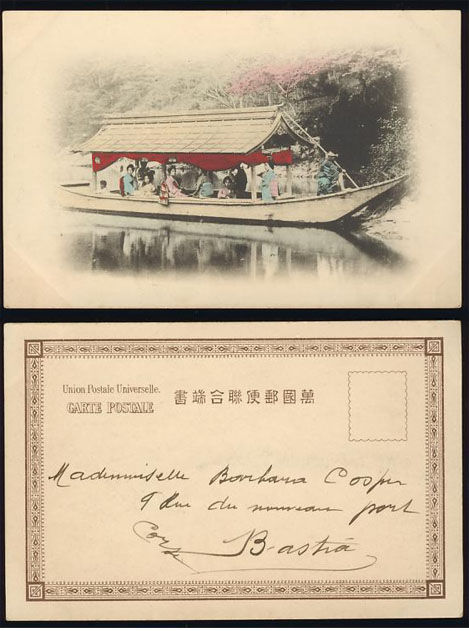 Union Postale Universelle.
CARTE POSTALE
萬國郵便聯合端書
Mademoiselle Barbara Cooper
9 Rue du nouveau port
Corse Bastia